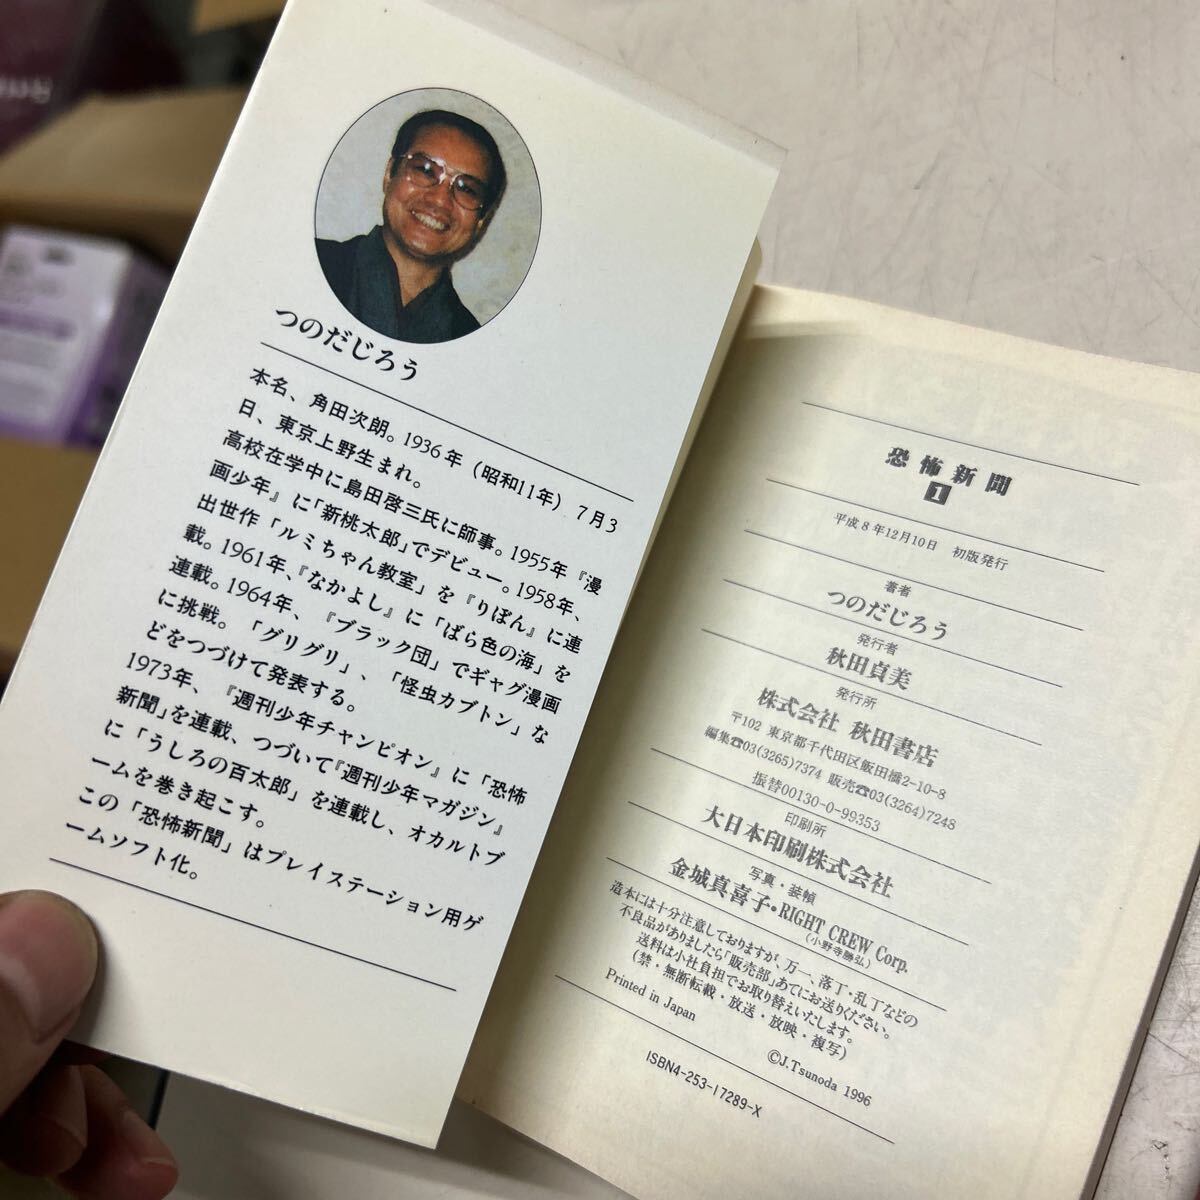 つのだじろう
本名、角田次朗。1936年（昭和11年）7月3
日、東京上野生まれ。
高校在学中に島田啓三氏に師事。1955年『漫
画少年』に「新桃太郎」でデビュー。1958年、
出世作「ルミちゃん教室」を『りぼん』に連
載。1961年、『なかよし』に「ばら色の海」を
連載。1964年、『ブラック団』でギャグ漫画
に挑戦。「グリグリ」、「怪虫カブトン」な
どをつづけて発表する。
1973年、『週刊少年チャンピオン』に「恐怖
新聞」を連載、つづいて『週刊少年マガジン』
に「うしろの百太郎」を連載し、オカルトブ
ームを巻き起こす。
この「恐怖新聞」はプレイステーション用ゲ
ームソフト化。
恐怖新聞
1
平成8年12月10日 初版発行
著者
つのだじろう
発行者
秋田貞美
発行所
株式会社 秋田書店
〒102 東京都千代田区飯田橋2-10-8
編集☎03(3265)7374 販売☎03(3264)7248
振替00130-0-99353
印刷所
大日本印刷株式会社
写真・装幀
金城真喜子・RIGHT CREW Corp.
(小野寺勝弘)
造本には十分注意しておりますが、万一、落丁・乱丁などの
不良品がありましたら「販売部」あてにお送りください。
送料は小社負担でお取り替えいたします。
(禁・無断転載・放送・放映・複写)
Printed in Japan
©J.Tsunoda 1996
ISBN4-253-17289-X